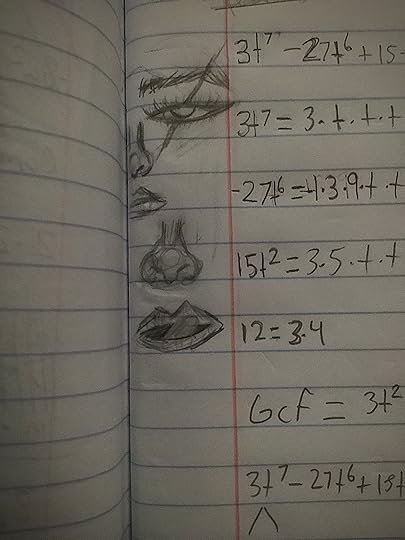 3t⁷ - 27t⁶ + 15
3t⁷ = 3·t·t·t
-27t⁶ = -1·3·9·t·t
15t² = 3·5·t·t
12 = 3·4
Gcf = 3t²
3t⁷ - 27t⁶ + 15t